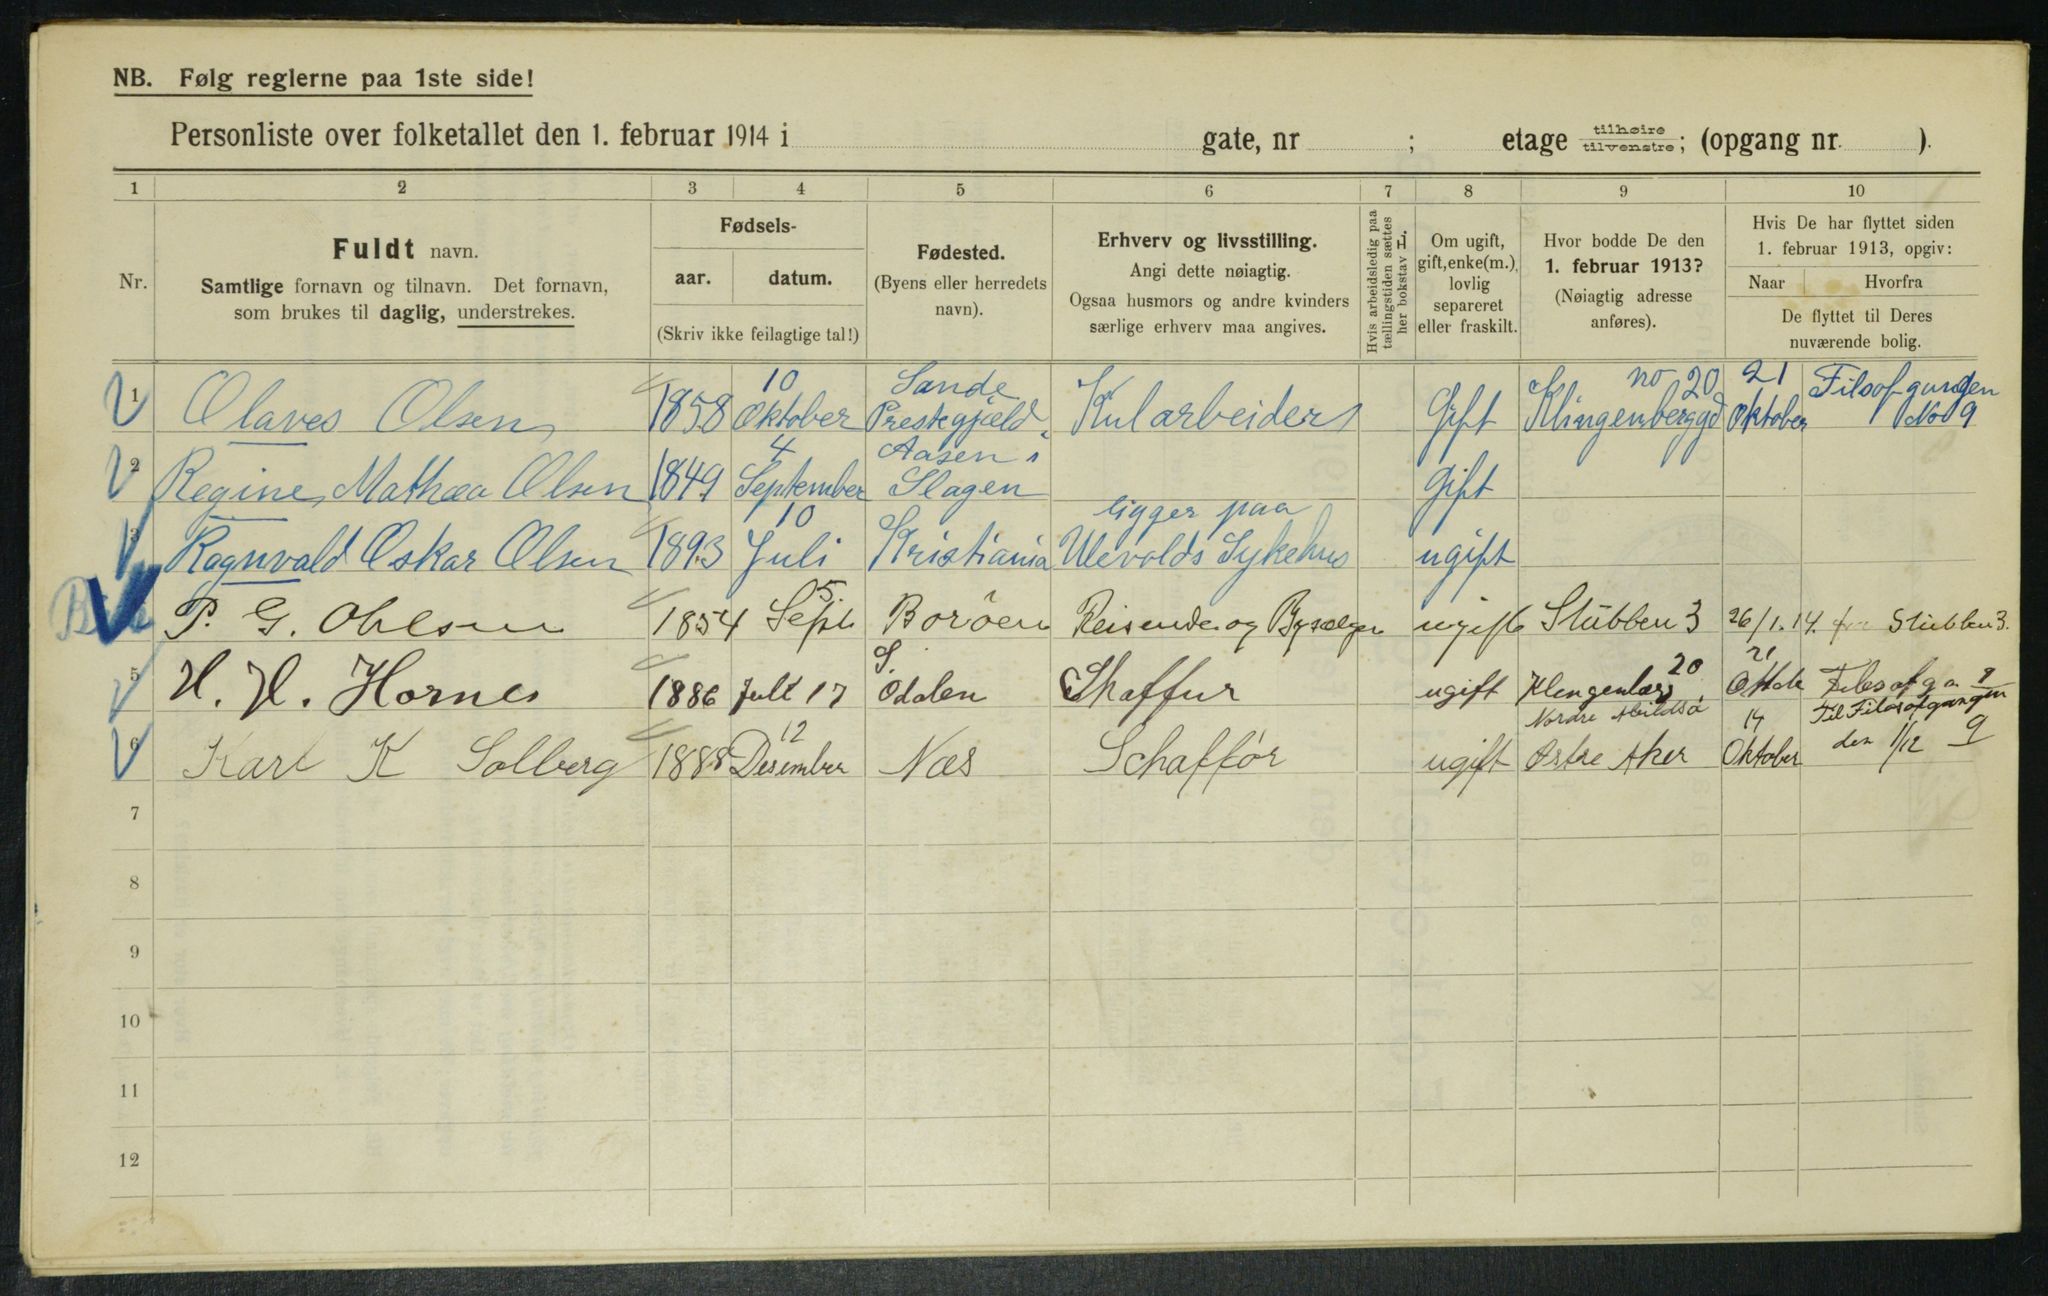 NB. Følg reglerne paa 1ste side!
Personliste over folketallet den 1. februar 1914 i gate, nr ; etage tilhøire tilvenstre; (opgang nr. ).
1 2 3 4 5 6 7 8 9 10
Nr.
Fuldt navn.
Samtlige fornavn og tilnavn. Det fornavn,
som brukes til daglig, understrekes.
Fødsels-
aar. datum.
(Skriv ikke feilagtige tal!)
Fødested.
(Byens eller herredets
navn).
Erhverv og livsstilling.
Angi dette nøiagtig.
Ogsaa husmors og andre kvinders
særlige erhverv maa angives.
Hvis arbeidsledig paa
tællingstiden sættes
her bokstav L.
Om ugift,
gift, enke(m.),
lovlig
separeret
eller fraskilt.
Hvor bodde De den
1. februar 1913?
(Nøiagtig adresse
anføres).
Hvis De har flyttet siden
1. februar 1913, opgiv:
Naar Hvorfra
De flyttet til Deres
nuværende bolig.
1 Olaves Olsen 1858 10 Oktober Sande Prestegjæld Kularbeider Gift Klingenberggd no 20 21 Oktober Filosofgangen No 9
2 Regine Mathea Olsen 1849 4 September Aasen i Slagen Gift
3 Ragnvald Oskar Olsen 1893 10 Juli Kristiania ligger paa Ulevolds Sykehus ugift
P. G. Ohlsen 1854 5. Sept. Borøen Reisende og Bysælger ugift Stubben 3 26/1. 14. fra Stubben 3.
5 H. H. Hornes 1886 Juli 17 S. Odalen Shaffur ugift Klengenberg 20 21 Filosofga 9
6 Karl K Solberg 1888 12 Desember Næs Schaffør ugift Nordre Østre Aker 14 Oktober Til Filosofgangen 9 den 1/12
7
8
9
10
11
12